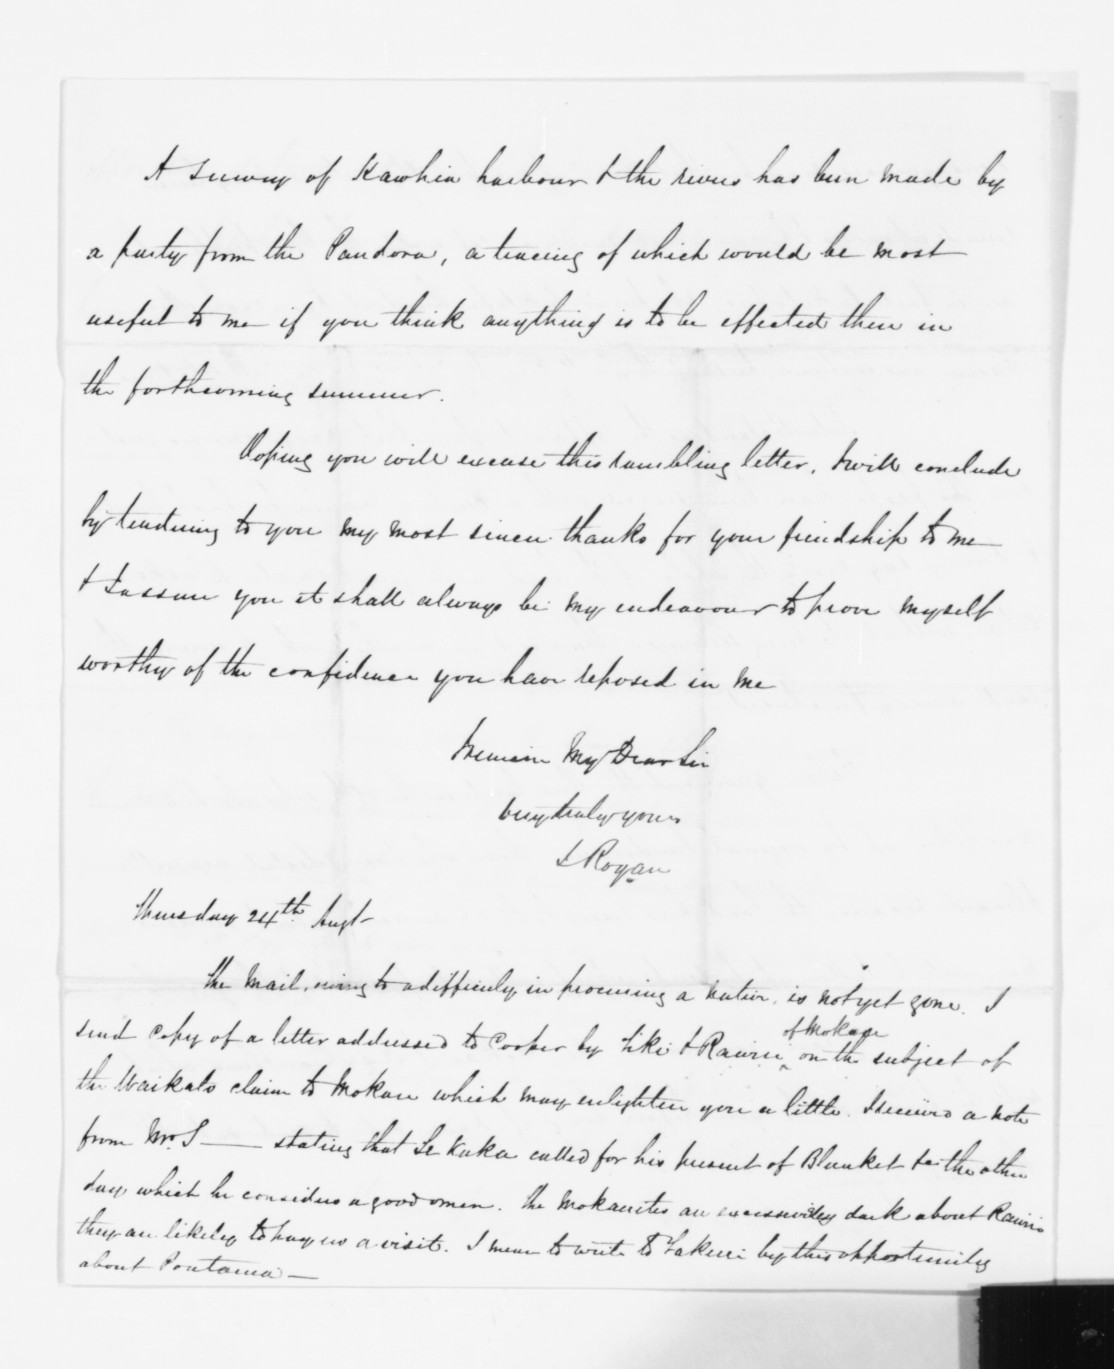 A survey of Kawhia harbour & the rivers has been made by
a party from the Pandora, a tracing of which would be most
useful to me if you think anything is to be effected there in
the forthcoming summer.
Hoping you will excuse this rambling letter, I will conclude
by tendering to you my most sincere thanks for your friendship to me
& I assure you it shall always be my endeavour to prove myself
worthy of the confidence you have reposed in me
I remain My Dear Sir
very truly yours
J Rogan
Thursday 24th Augt
The Mail, owing to a difficuly in procuring a native, is not yet gone. I
send copy of a letter addressed to Cooper by Tiki & Rawiri of Mokau on the subject of
the Waikato claim to Mokau which may enlighten you a little. I received a note
from Mr. S— stating that Te Kaka called for his present of Blanket &c the other
day which he considers a good omen. The Mokauites are excessively dark about Rawiri
they are likely to pay us a visit. I mean to write to Takerei by this opportunity
about Poutama —